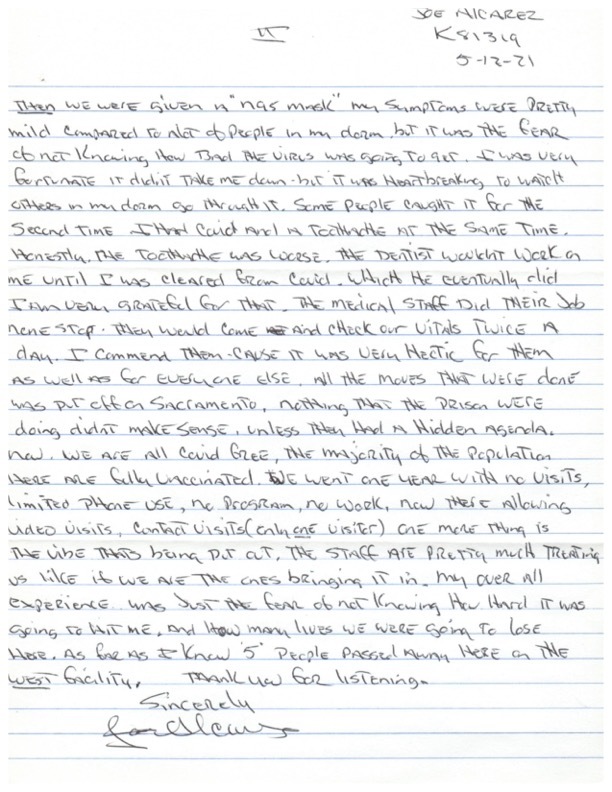 JOE Alcarez
II
K81319
5-12-21
Then we were given n "n95 mask" my symptoms were pretty
mild compared to alot of people in my dorm, but it was the fear
of not knowing how bad the virus was going to get. I was very
fortunate it didn't take me down - but it was heartbreaking to watch
others in my dorm go through it. Some people caught it for the
second time I had covid and a toothache at the same time.
Honestly, the toothache was worse. The dentist wouldnt work on
me until I was cleared from covid. Which he eventually did
I am very grateful for that. The medical staff did their job
none stop. They would come and check our vitals twice a
day. I commend them - cause it was very hectic for them
as well as for everyone else. All the moves that were done
was put off on Sacramento, nothing that the prison were
doing didnt make sense, unless they had a hidden agenda.
now. we are all covid free, the majority of the population
here are fully vaccinated. We went one year with no visits,
limited phone use, no program, no work, now there allowing
video visits, contact visits (only one visiter) one more thing is
the vibe thats being put out. The staff are pretty much treating
us like if we are the ones bringing it in. My over all
experience was just the fear of not knowing how hard it was
going to hit me, and how many lives we were going to lose
here. As far as I know '5' people passed away here on the
West facility. Thank you for listening.
Sincerely